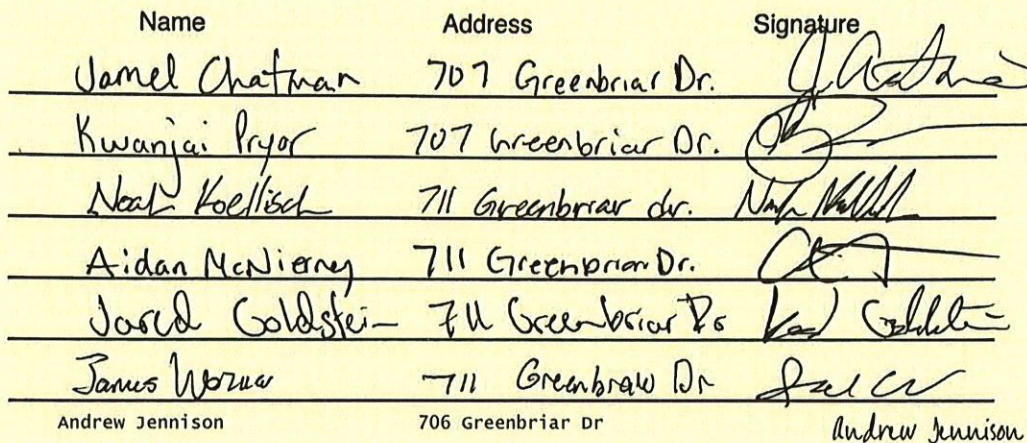 Name Address Signature
Jamel Chatman 707 Greenbriar Dr.
Kwanjai Pryor 707 Greenbriar Dr.
Noah Koellisch 711 Greenbriar dr.
Aidan McNierney 711 Greenbriar Dr.
Jared Goldstein 711 Greenbriar Dr Goldstein
James 711 Greenbraw Dr
Andrew Jennison 706 Greenbriar Dr Andrew Jennison